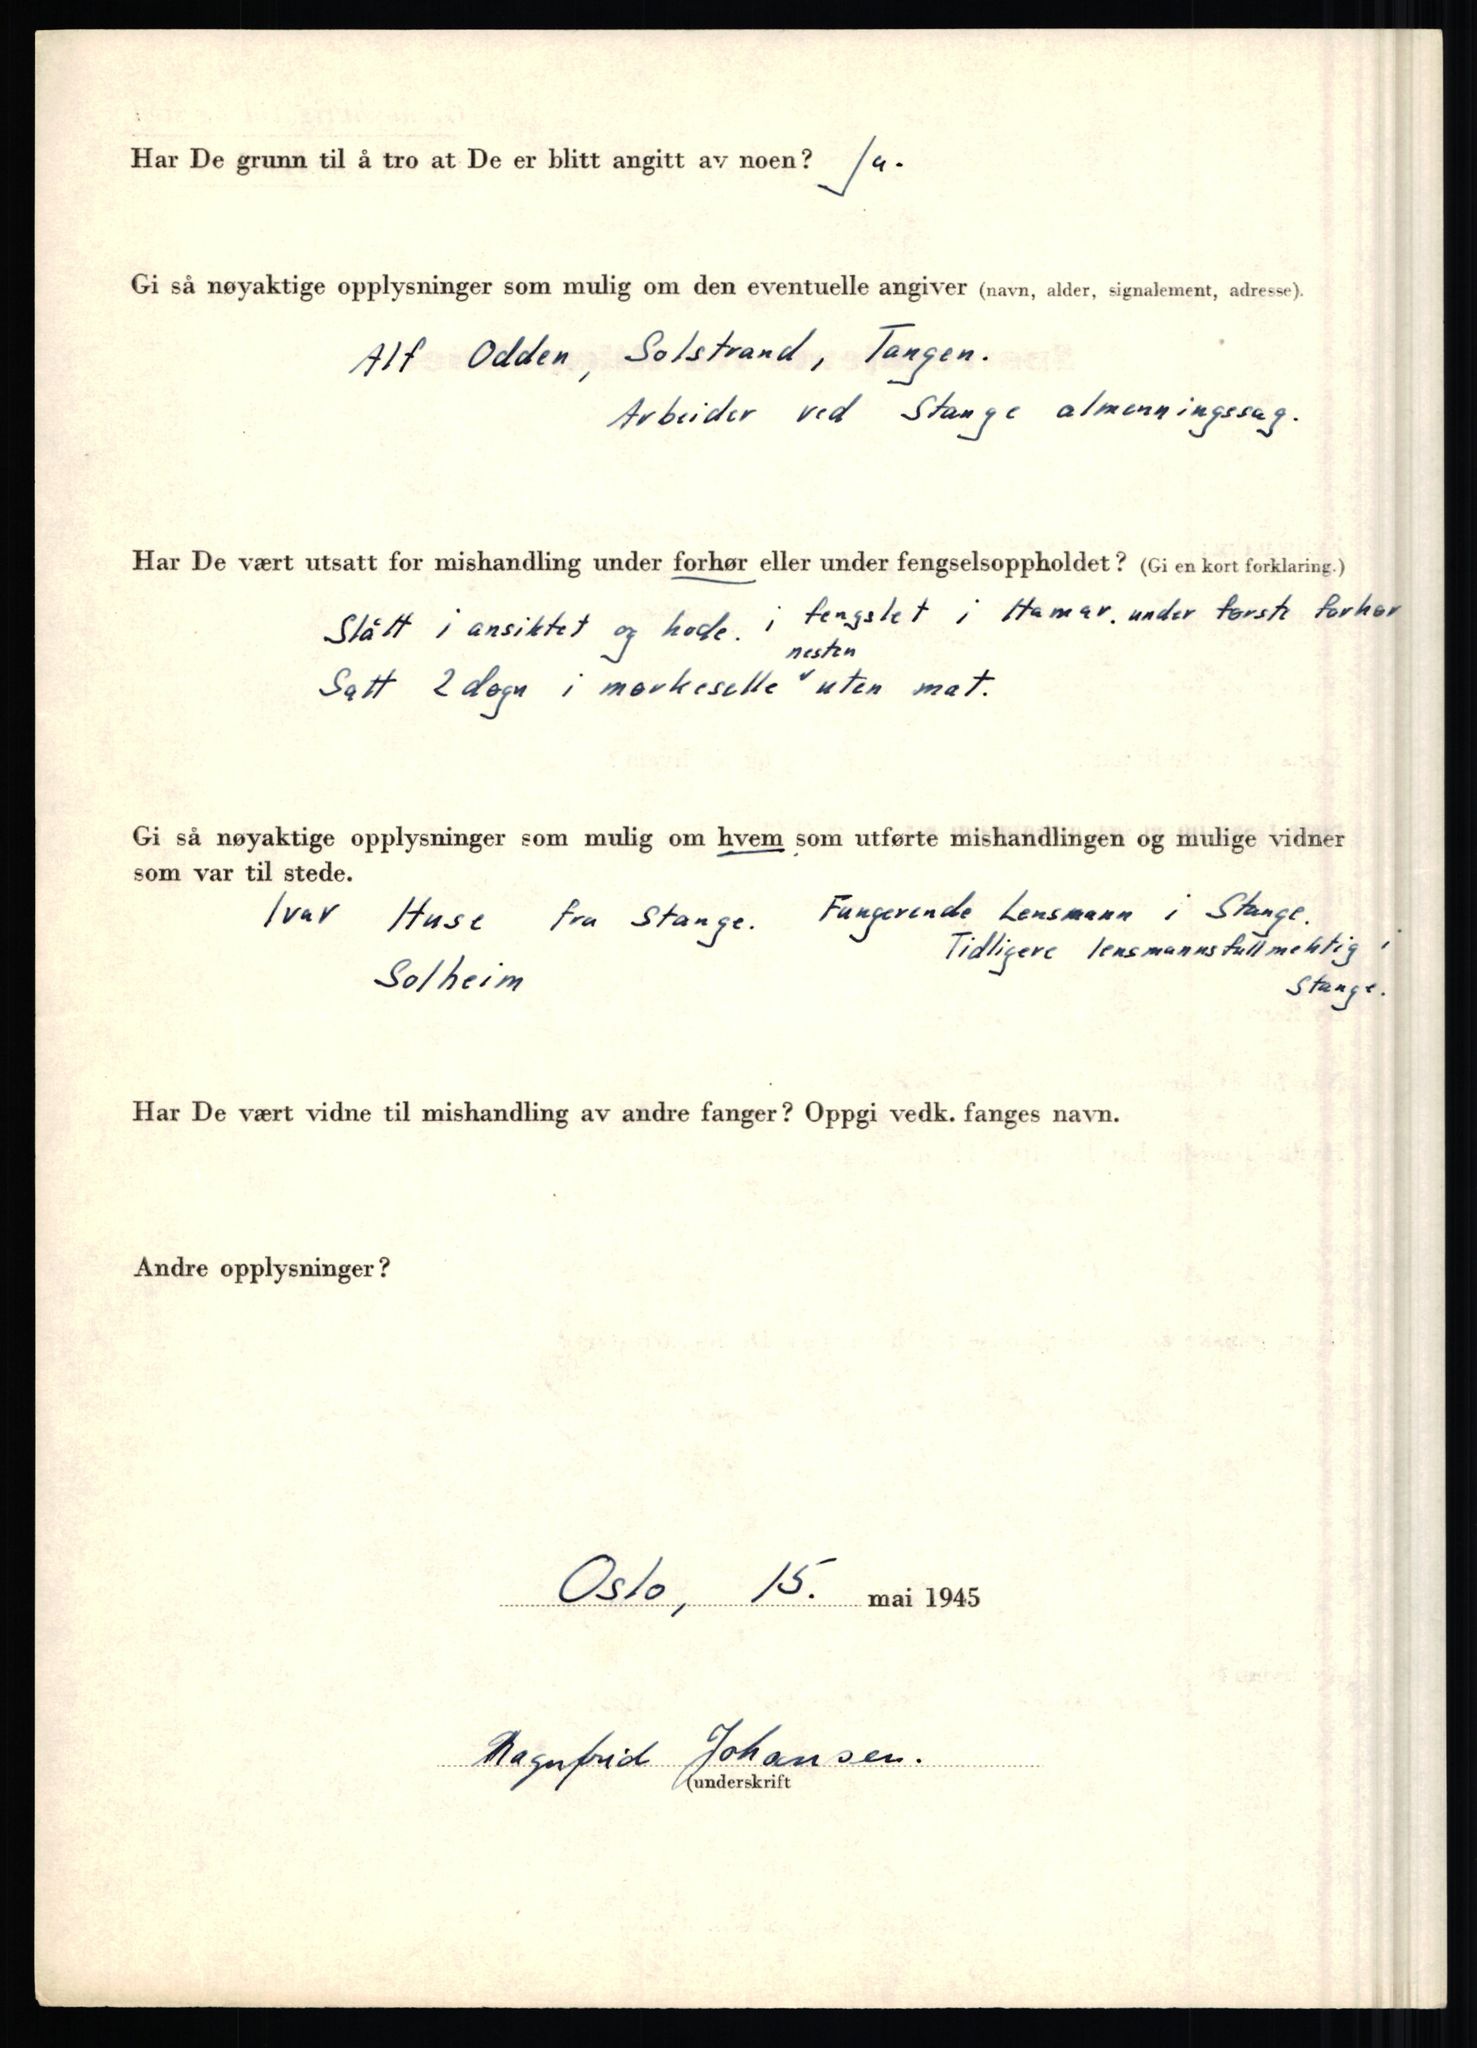 Har De grunn til å tro at De er blitt angitt av noen? Ja.
Gi så nøyaktige opplysninger som mulig om den eventuelle angiver (navn, alder, signalement, adresse).
Alf Odden, Solstrand, Tangen.
Arbeider ved Stange almenningssag.
Har De vært utsatt for mishandling under forhør eller under fengselsoppholdet? (Gi en kort forklaring.)
Slått i ansiktet og hode. i fengslet i Hamar. under første forhør
nesten
Satt 2 døgn i mørkeselle v uten mat.
Gi så nøyaktige opplysninger som mulig om hvem som utførte mishandlingen og mulige vidner
som var til stede.
Ivar Huse fra Stange. Fungerende Lensmann i Stange.
Tidligere lensmannsfullmektig i
Solheim
Stange.
Har De vært vidne til mishandling av andre fanger? Oppgi vedk. fanges navn.
Andre opplysninger?
Oslo, 15. mai 1945
Ragnfrid Johansen.
(underskrift